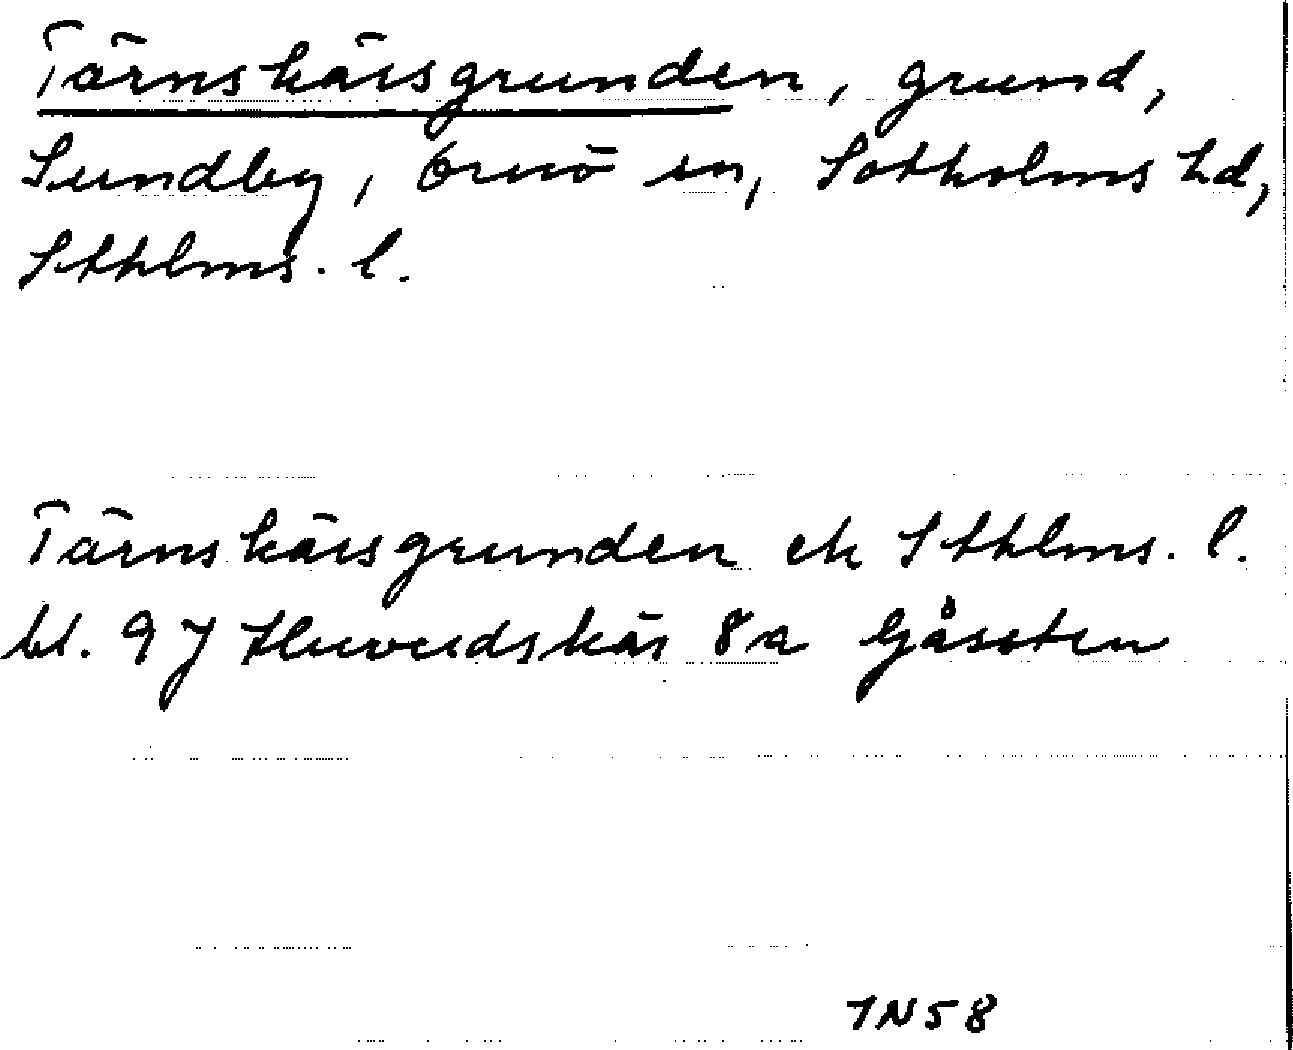 Tärnskärsgrunden, grund,
Sundby, Ornö sn, Sotholms hd,
Sthlms. l.
Tärnskärsgrunden ek Sthlms. l.
bl. 97 Huvudskär 8a Gåssten
TN58